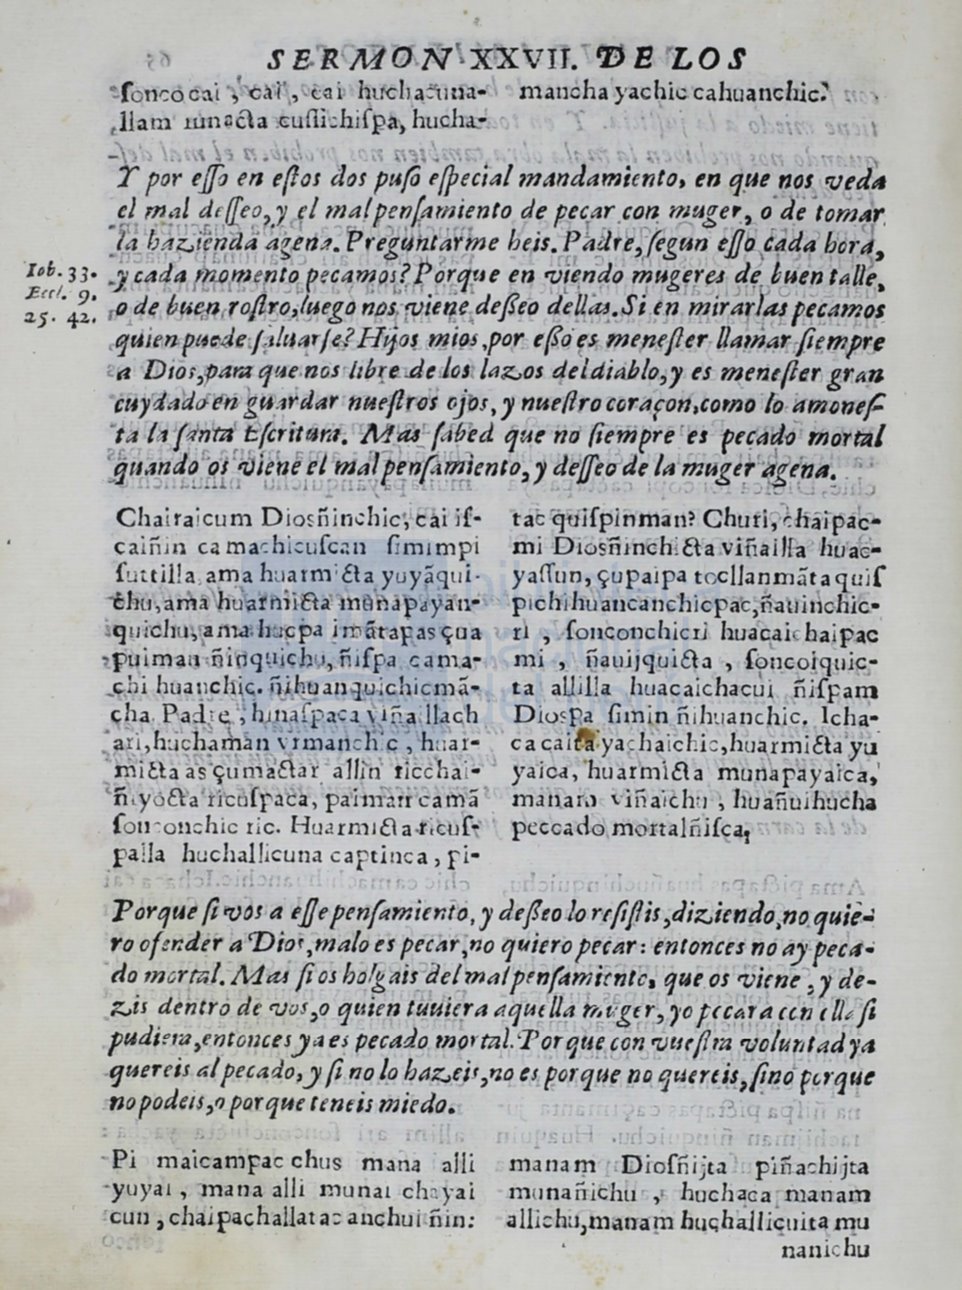 SERMON XXVII. DE LOS
ſonco cai, cai, cai huchacuna-
llam mnacta cuſſichiſpa, hucha-
mancha yachic cahuanchic?
Y por eſſo en eſtos dos puſo eſpecial mandamiento, en que nos veda
el mal deſſeo, y el mal penſamiento de pecar con muger, o de tomar
la hazienda agena. Preguntarme heis. Padre, ſegun eſſo cada hora,
y cada momento pecamos? Porque en viendo mugeres de buen talle,
o de buen roſtro, luego nos viene deſeo dellas. Si en mirarlas pecamos
quien puede ſaluarſe? Hijos mios, por eſo es meneſter llamar ſiempre
a Dios, para que nos libre de los lazos del diablo, y es meneſter gran
cuydado en guardar nueſtros ojos, y nueſtro coraçon, como lo amoneſ-
ta la ſanta Eſcritura. Mas ſabed que no ſiempre es pecado mortal
quando os viene el mal penſamiento, y deſſeo de la muger agena.
Iob. 33.
Eccl. 9.
25. 42.
Chairaicum Dioſñinchic, cai iſ-
caiñin camachicuſcan ſimimpi
ſuttilla, ama huarmicta yuyãqui-
chu, ama huarmicta munapayan-
quichu, ama hucpa imãtapas çua
puiman ñinquichu, ñiſpa cama-
chi huanchic. ñihuanquichicmã-
cha Padre, hinaſpaca viñaillach
ari, huchaman vrmanchic, huar-
micta as çumactar allin ricchai-
ñiyocta ricuſpaca, paiman camã
ſonconchic ric. Huarmicta ricuſ-
palla huchallicuna captinca, pi-
tac quiſpinman? Churi, chaipac-
mi Dioſñinchicta viñailla huac-
yaſſun, çupaipa tocllanmãta quiſ
pichihuancanchicpac, ñauinchic-
ri, ſonconchicri huacaichaipac
mi, ñauijquicta, ſoncoiquic-
ta allilla huacaichacui ñiſpam
Dioſpa ſimin ñihuanchic. Icha-
ca caita yachaichic, huarmicta yu
yaica, huarmicta munapayaica,
manara viñaichu, huañui hucha
peccado mortalñiſca,
Porque ſi vos a eſſe penſamiento, y deſeo lo reſiſtis, diziendo, no quie-
ro ofender a Dios, malo es pecar, no quiero pecar: entonces no ay peca-
do mortal. Mas ſi os holgais del mal penſamiento, que os viene, y de-
zis dentro de vos, o quien tuuiera aquella muger, yo pecara con ella ſi
pudiera, entonces ya es pecado mortal. Porque con vueſtra voluntad ya
quereis al pecado, y ſi no lo hazeis, no es porque no quereis, ſino porque
no podeis, o porque teneis miedo.
Pi maicampac chus mana alli
yuyai, mana alli munai chayai
cun, chaipachallatac anchui ñin:
manam Dioſñijta piñachijta
munañichu, huchaca manam
allichu, manam huchallicuita mu
nanichu